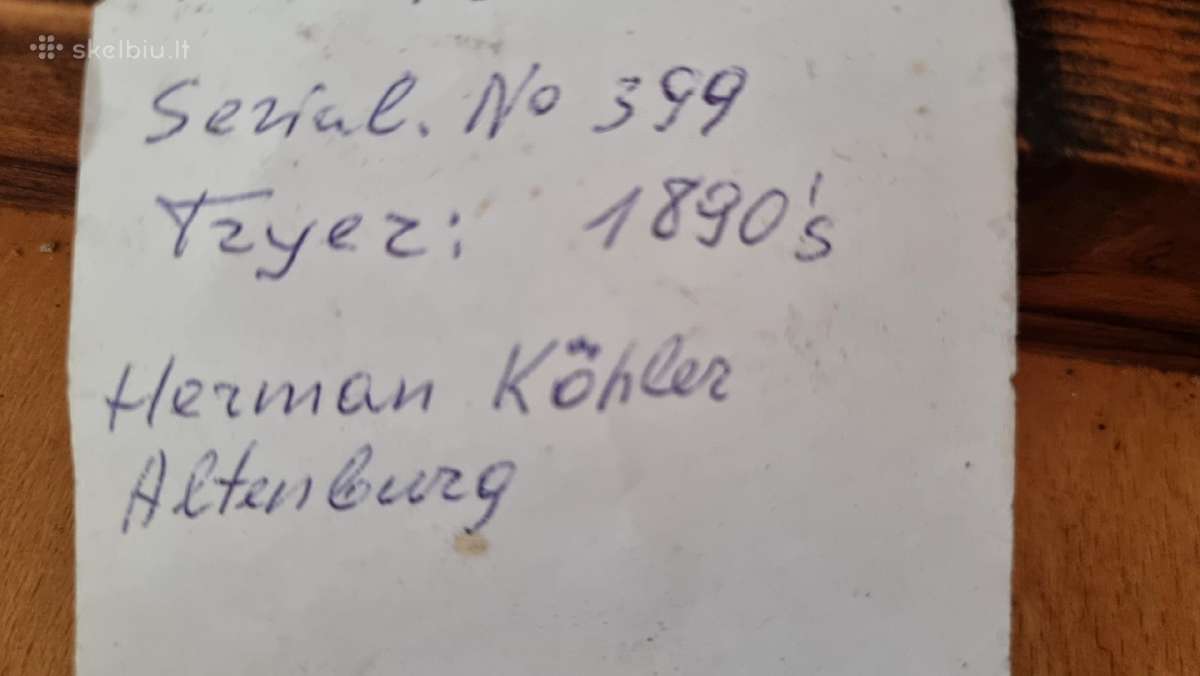 skelbiu.lt
Serial. No 399
Tryer: 1890's
Herman Köhler
Altenburg